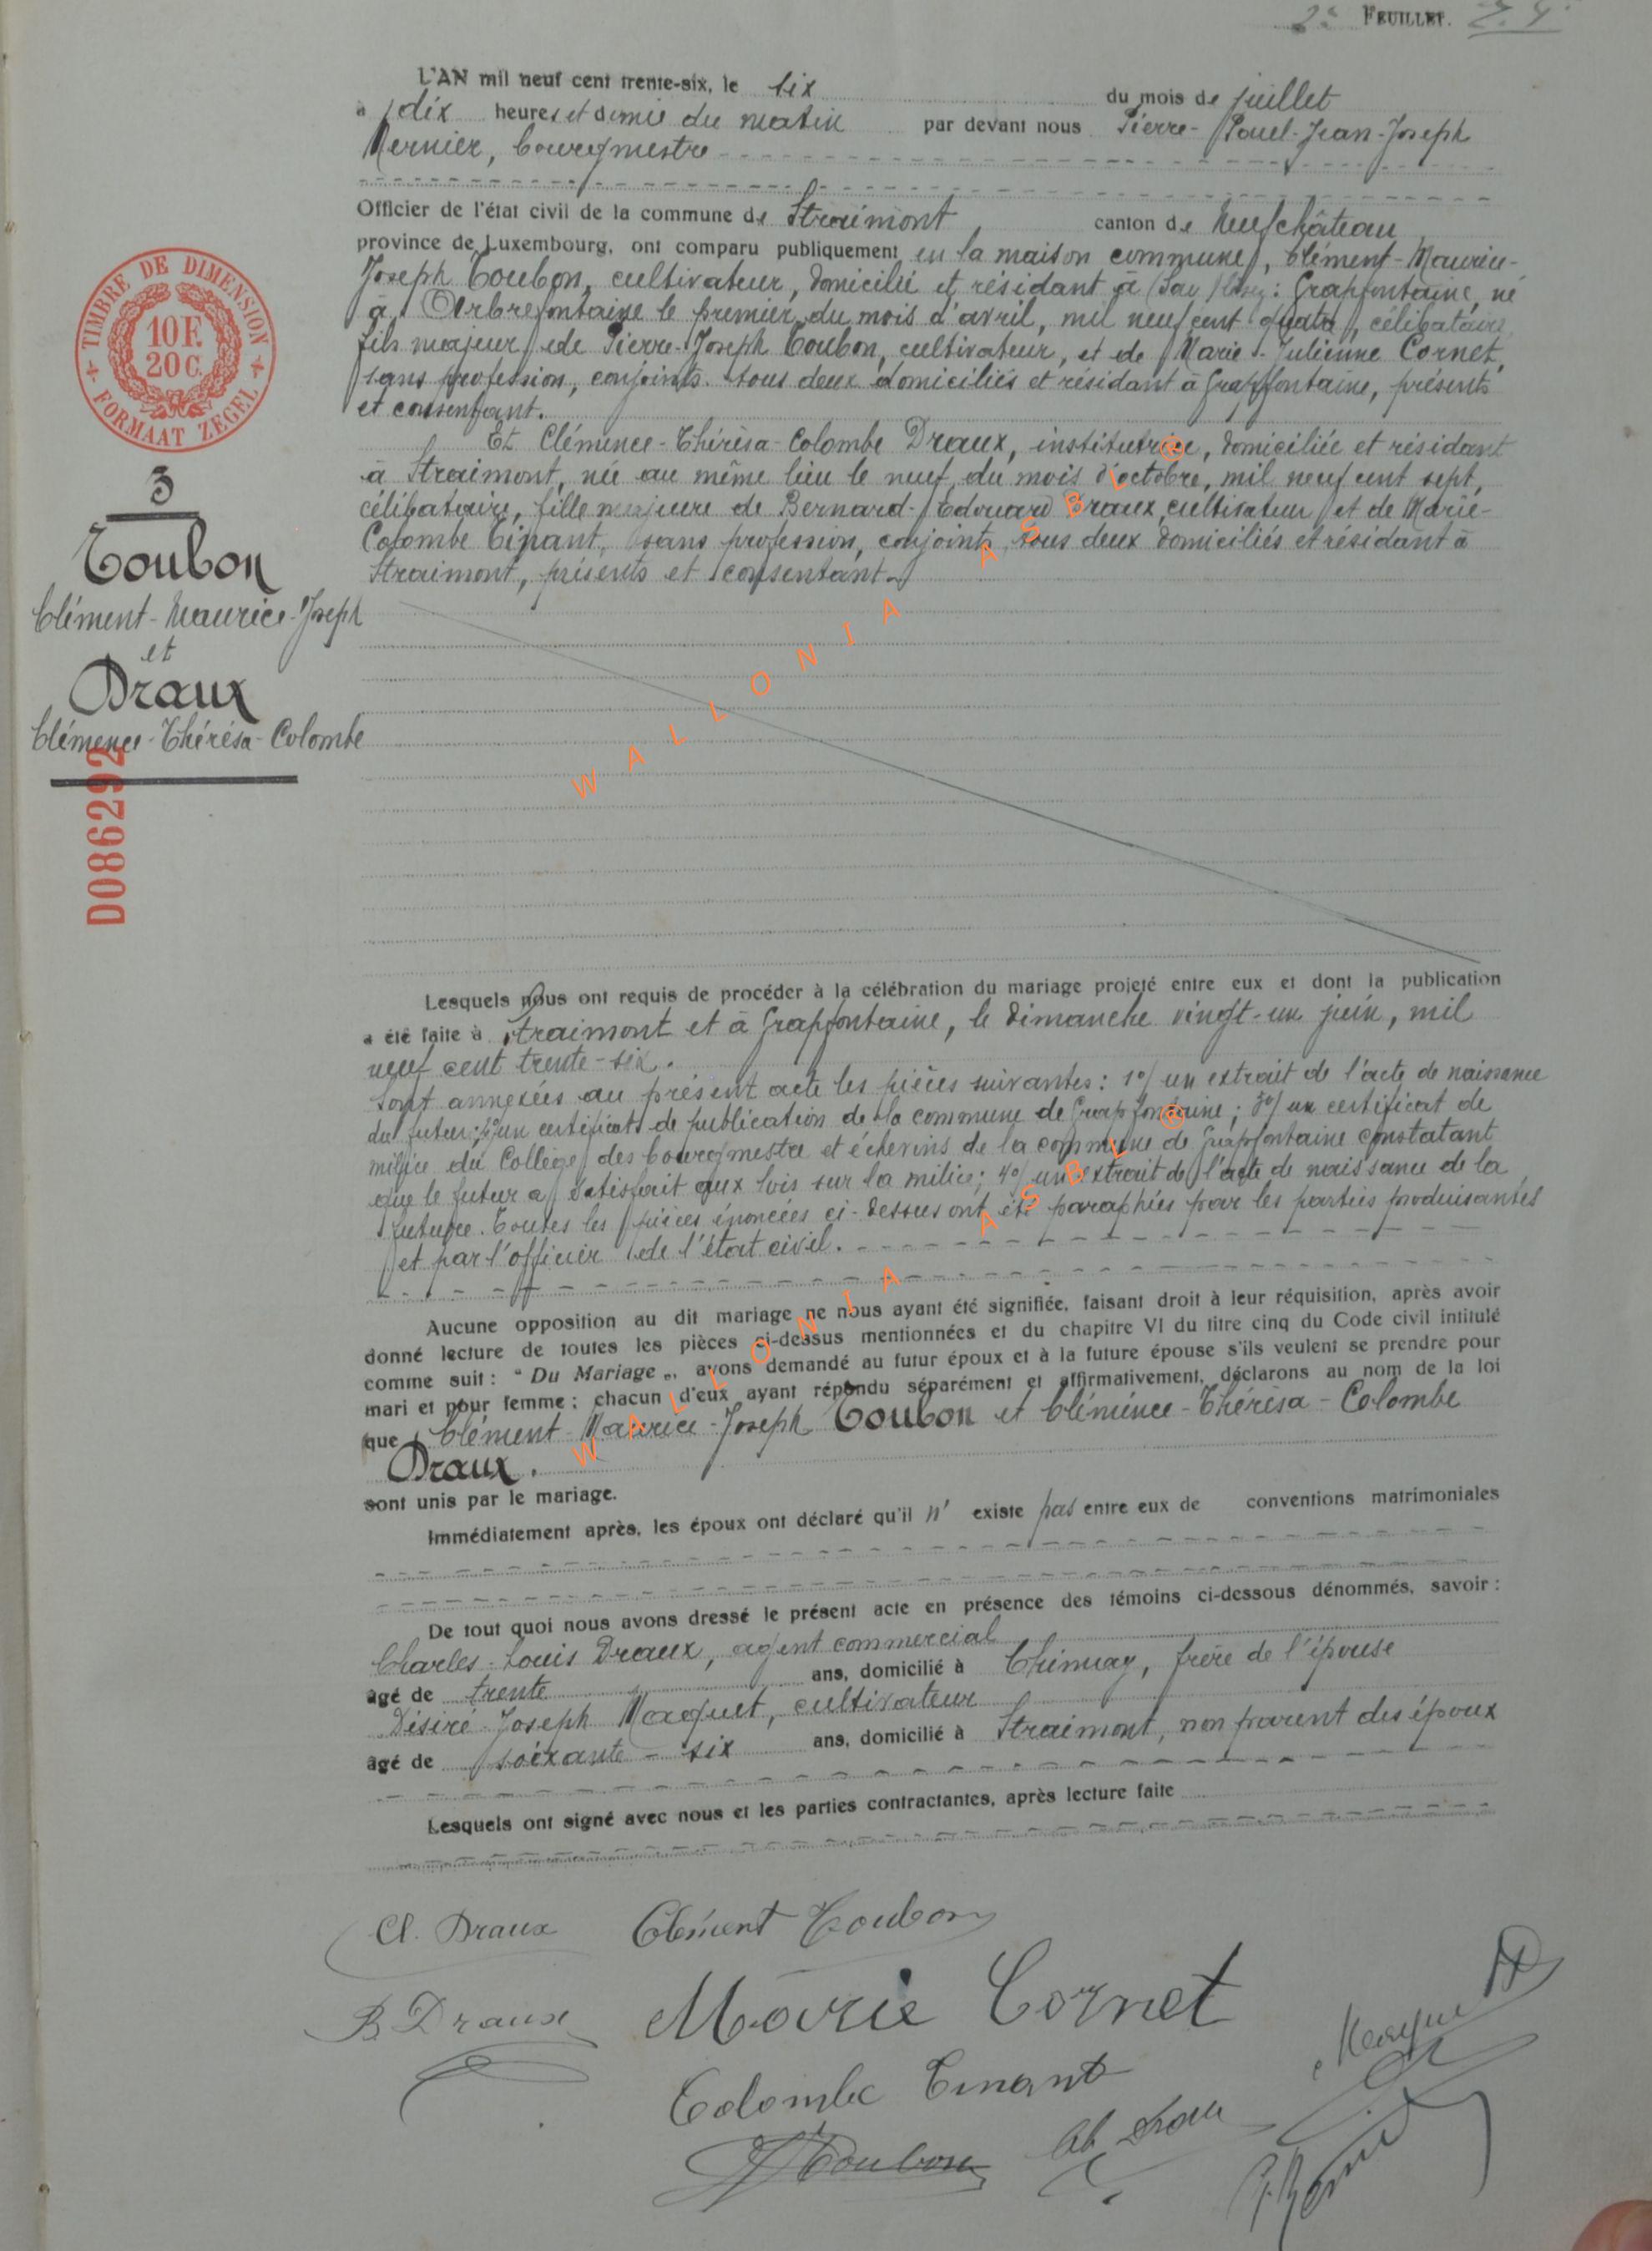 2e FEUILLET.
L'AN mil neuf cent trente-six, le six du mois de juillet
à dix heures et demie du matin par devant nous Pierre-Paul-Jean-Joseph
Mernier, bourgmestre
Officier de l'état civil de la commune de Straimont canton de Neufchâteau
province de Luxembourg, ont comparu publiquement en la maison commune, Clément-Maurice-
Joseph Toubon, cultivateur, domicilié et résidant à Grapfontaine, né
à Arbrefontaine le premier du mois d'avril, mil neuf cent quatre, célibataire
fils majeur de Pierre-Joseph Toubon, cultivateur, et de Marie-Julienne Cornet,
sans profession, conjoints tous deux domiciliés et résidant à Grapfontaine, présents
et consentant.
Et Clémence-Thérèsa-Colombe Draux, institutrice, domiciliée et résidant
à Straimont, née au même lieu le neuf du mois d'octobre, mil neuf cent sept,
célibataire, fille majeure de Bernard-Edouard Draux, cultivateur et de Marie-
Colombe Tinant, sans profession, conjoints, tous deux domiciliés et résidant à
Straimont, présents et consentant.
TIMBRE DE DIMENSION
10 F.
20 C.
FORMAAT ZEGEL
3
Toubon
Clément-Maurice-Joseph
et
Draux
Clémence-Thérésa-Colombe
D086292
WALLONIA ASBL ®
Lesquels nous ont requis de procéder à la célébration du mariage projeté entre eux et dont la publication
a été faite à Straimont et à Grapfontaine, le dimanche vingt-un juin, mil
neuf cent trente-six.
Sont annexées au présent acte les pièces suivantes: 1°/ un extrait de l'acte de naissance
du futur; 2°/ un certificat de publication de la commune de Grapfontaine; 3°/ un certificat de
milice du Collège des bourgmestre et échevins de la commune de Grapfontaine constatant
que le futur a satisfait aux lois sur la milice; 4°/ un extrait de l'acte de naissance de la
future. Toutes les pièces énoncées ci-dessus ont été paraphées par les parties produisantes
et par l'officier de l'état civil.
Aucune opposition au dit mariage ne nous ayant été signifiée, faisant droit à leur réquisition, après avoir
donné lecture de toutes les pièces ci-dessus mentionnées et du chapitre VI du titre cinq du Code civil intitulé
comme suit: " Du Mariage „, avons demandé au futur époux et à la future épouse s'ils veulent se prendre pour
mari et pour femme; chacun d'eux ayant répondu séparément et affirmativement, déclarons au nom de la loi
que Clément-Maurice-Joseph Toubon et Clémence-Thérèsa-Colombe
Draux.
sont unis par le mariage.
Immédiatement après, les époux ont déclaré qu'il n' existe pas entre eux de conventions matrimoniales
WALLONIA ASBL ®
De tout quoi nous avons dressé le présent acte en présence des témoins ci-dessous dénommés, savoir:
Charles-Louis Draux, agent commercial
âgé de trente ans, domicilié à Chimay, frère de l'épouse
Désiré-Joseph Maquet, cultivateur
âgé de soixante-six ans, domicilié à Straimont, non parent des époux
Lesquels ont signé avec nous et les parties contractantes, après lecture faite
Cl. Draux Clément Toubon
B Draux Marie Cornet
Colombe Tinant
Toubon